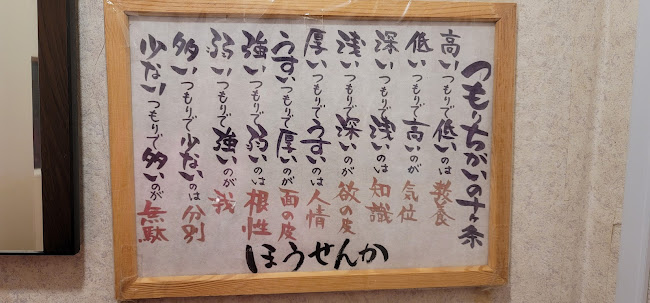 つもりちがいの十ヶ条
高いつもりで低いのは教養
低いつもりで高いのが気位
深いつもりで浅いのは知識
浅いつもりで深いのが欲の皮
厚いつもりでうすいのは人情
うすいつもりで厚いのが面の皮
強いつもりで弱いのは根性
弱いつもりで強いのが我
多いつもりで少ないのは分別
少ないつもりで多いのが無駄
ほうせんか